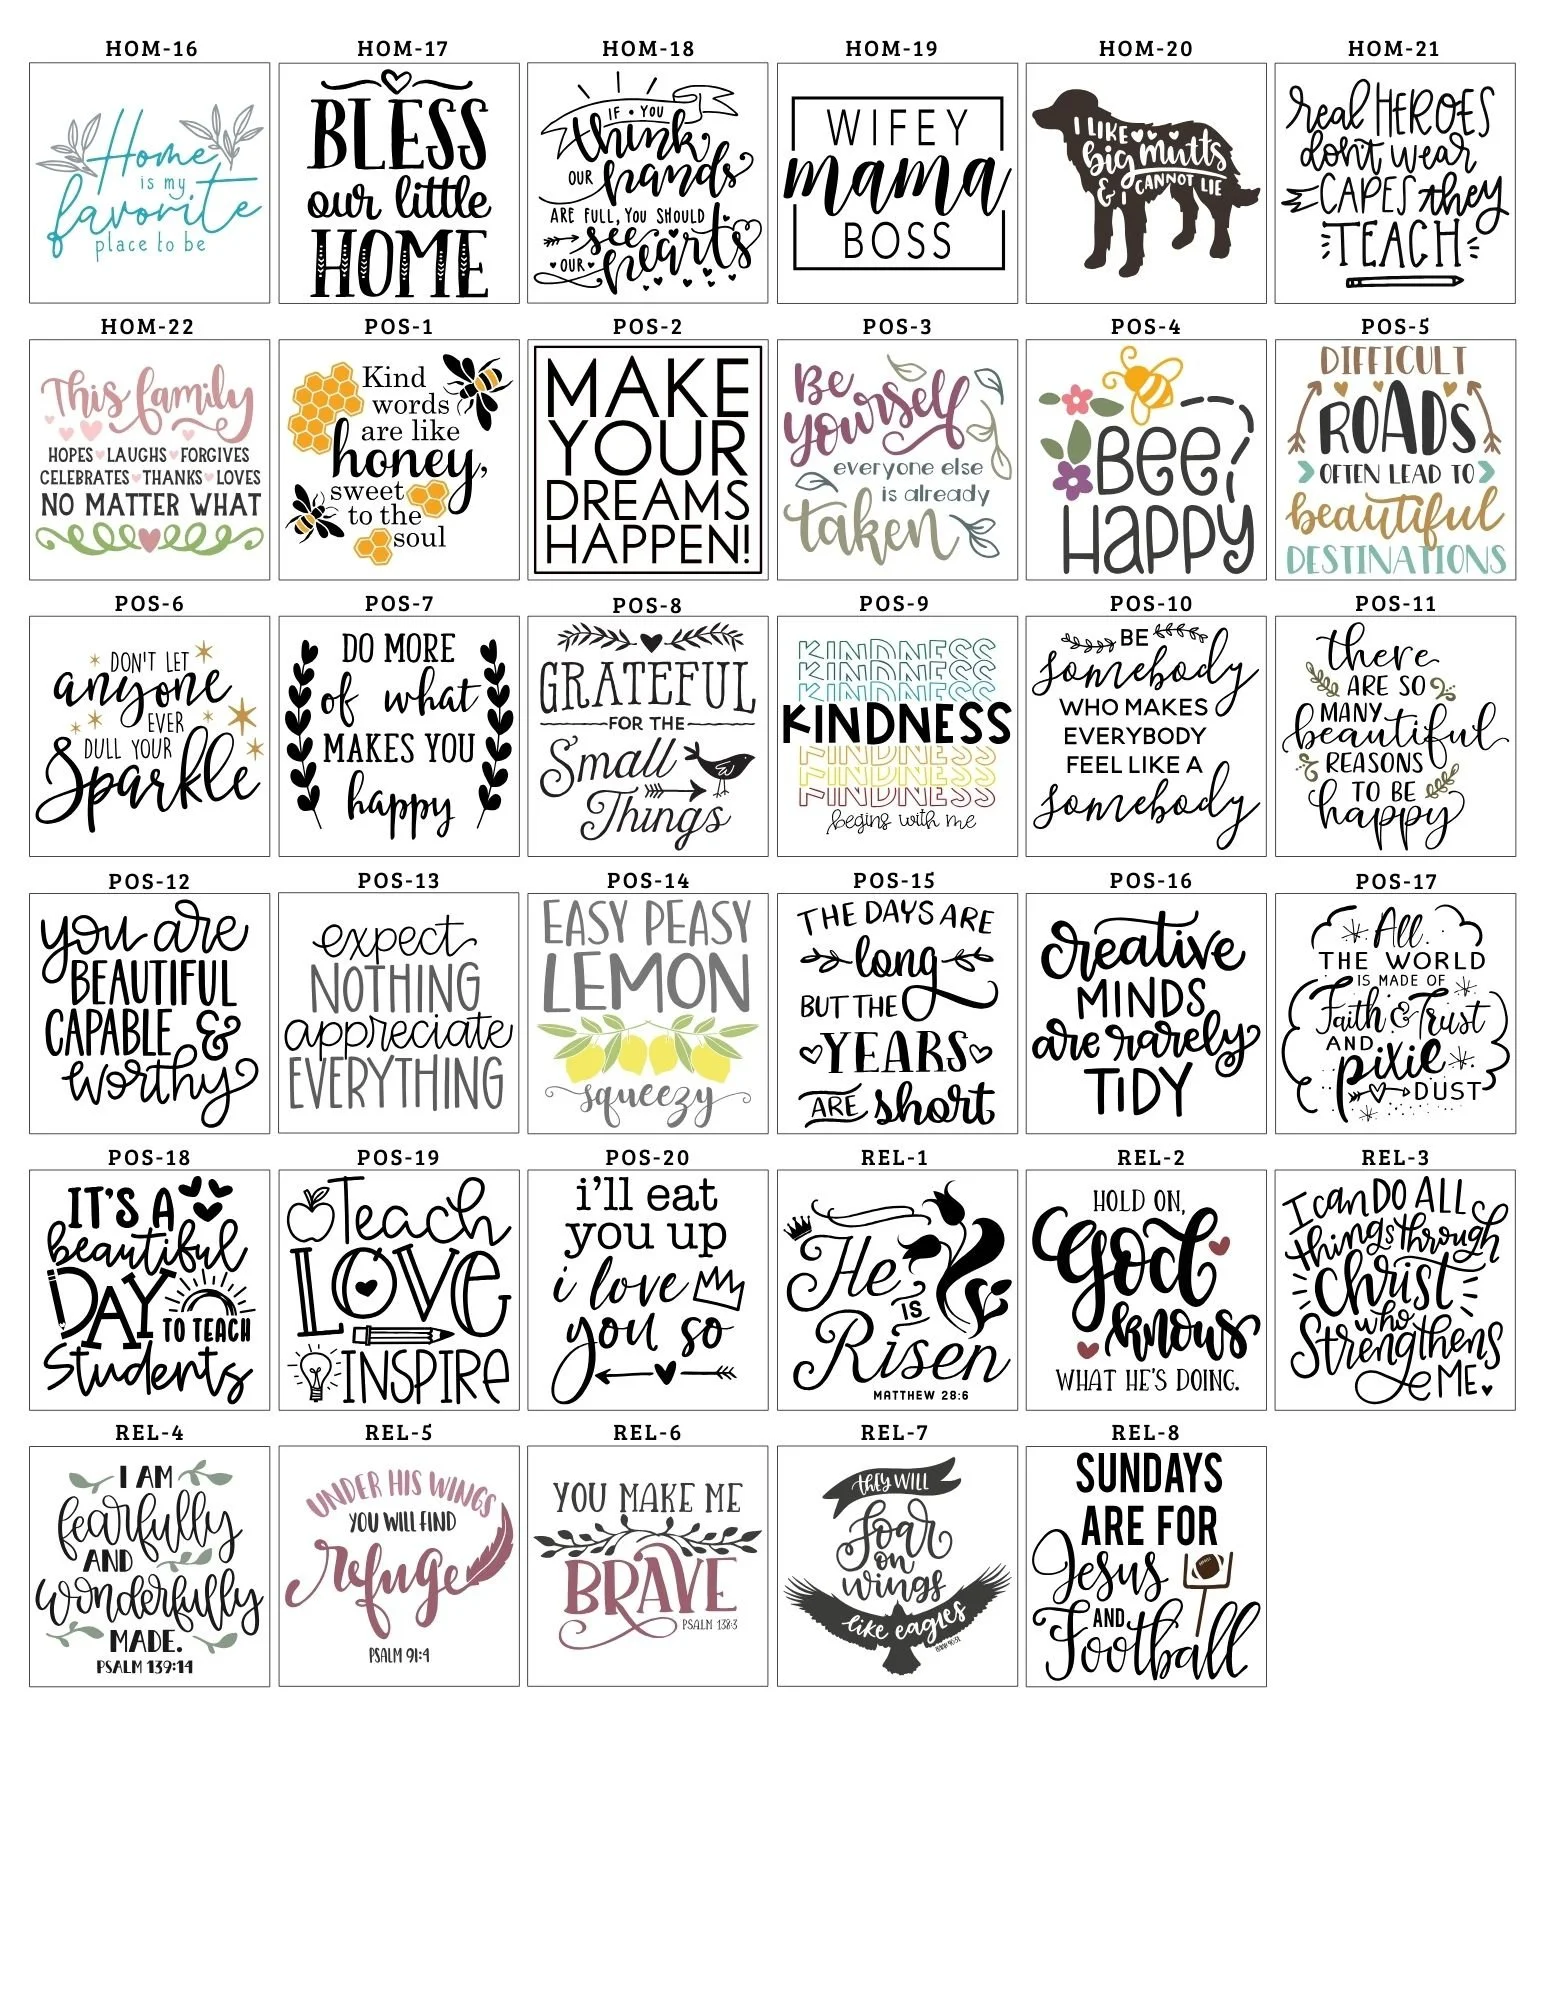 HOM-16
Home
is my
favorite
place to be
HOM-17
BLESS
our little
HOME
HOM-18
IF • YOU
think
OUR hands
ARE FULL, YOU SHOULD
see
OUR hearts
HOM-19
WIFEY
mama
BOSS
HOM-20
I LIKE
big mutts
& I CANNOT LIE
HOM-21
real HEROES
don't wear
CAPES they
TEACH
HOM-22
This family
HOPES LAUGHS FORGIVES
CELEBRATES THANKS LOVES
NO MATTER WHAT
POS-1
Kind
words
are like
honey,
sweet
to the
soul
POS-2
MAKE
YOUR
DREAMS
HAPPEN!
POS-3
Be
yourself
everyone else
is already
taken
POS-4
Bee
Happy
POS-5
DIFFICULT
ROADS
OFTEN LEAD TO
beautiful
DESTINATIONS
POS-6
DON'T LET
anyone
EVER
DULL YOUR
Sparkle
POS-7
DO MORE
of what
MAKES YOU
happy
POS-8
GRATEFUL
FOR THE
Small
Things
POS-9
KINDNESS
KINDNESS
KINDNESS
KINDNESS
KINDNESS
KINDNESS
KINDNESS
begins with me
POS-10
BE
somebody
WHO MAKES
EVERYBODY
FEEL LIKE A
somebody
POS-11
there
ARE SO
MANY
beautiful
REASONS
TO BE
happy
POS-12
you are
BEAUTIFUL
CAPABLE &
worthy
POS-13
expect
NOTHING
appreciate
EVERYTHING
POS-14
EASY PEASY
LEMON
squeezy
POS-15
THE DAYS ARE
long
BUT THE
YEARS
ARE short
POS-16
creative
MINDS
are rarely
TIDY
POS-17
All
THE WORLD
IS MADE OF
Faith & Trust
AND
pixie
DUST
POS-18
IT'S A
beautiful
DAY
TO TEACH
Students
POS-19
Teach
LOVE
INSPIRE
POS-20
i'll eat
you up
i love
you so
REL-1
He
IS
Risen
MATTHEW 28:6
REL-2
HOLD ON,
God
knows
WHAT HE'S DOING.
REL-3
I can DO ALL
things through
Christ
who
Strengthens
ME
REL-4
I AM
fearfully
AND
wonderfully
MADE.
PSALM 139:14
REL-5
UNDER HIS WINGS
YOU WILL FIND
refuge
PSALM 91:4
REL-6
YOU MAKE ME
BRAVE
PSALM 138:3
REL-7
they WILL
Soar
on
wings
like eagles
REL-8
SUNDAYS
ARE FOR
Jesus
AND
Football